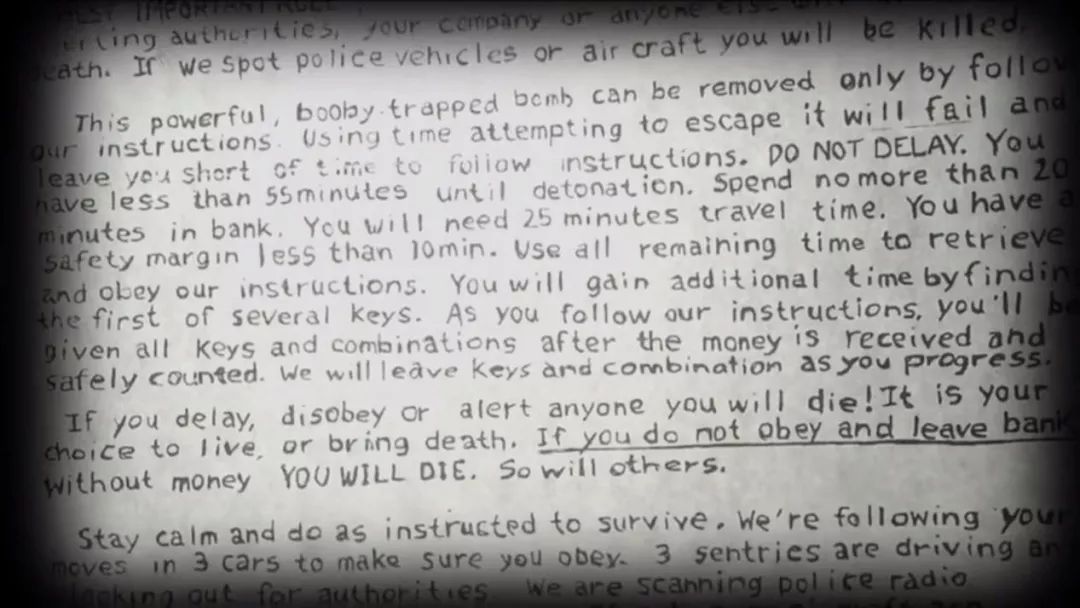 MOST IMPORTANT RULE
authorities, your company or anyone
death. If we spot police vehicles or air craft you will be killed.
This powerful, booby-trapped bomb can be removed only by
our instructions. Using time attempting to escape it will fail and
leave you short of time to follow instructions. DO NOT DELAY. You
have less than 55minutes until detonation. Spend no more than 20
minutes in bank. You will need 25 minutes travel time. You have a
safety margin less than 10min. Use all remaining time to retrieve
and obey our instructions. You will gain additional time by
the first of several keys. As you follow our instructions, you'll be
given all keys and combinations after the money is received and
safely counted. We will leave keys and combination as you progress.
If you delay, disobey or alert anyone you will die! It is your
choice to live, or bring death. If you do not obey and leave bank
without money YOU WILL DIE. So will others.
Stay calm and do as instructed to survive. We're following your
moves in 3 cars to make sure you obey. 3 sentries are driving
looking out for authorities. We are scanning police radio